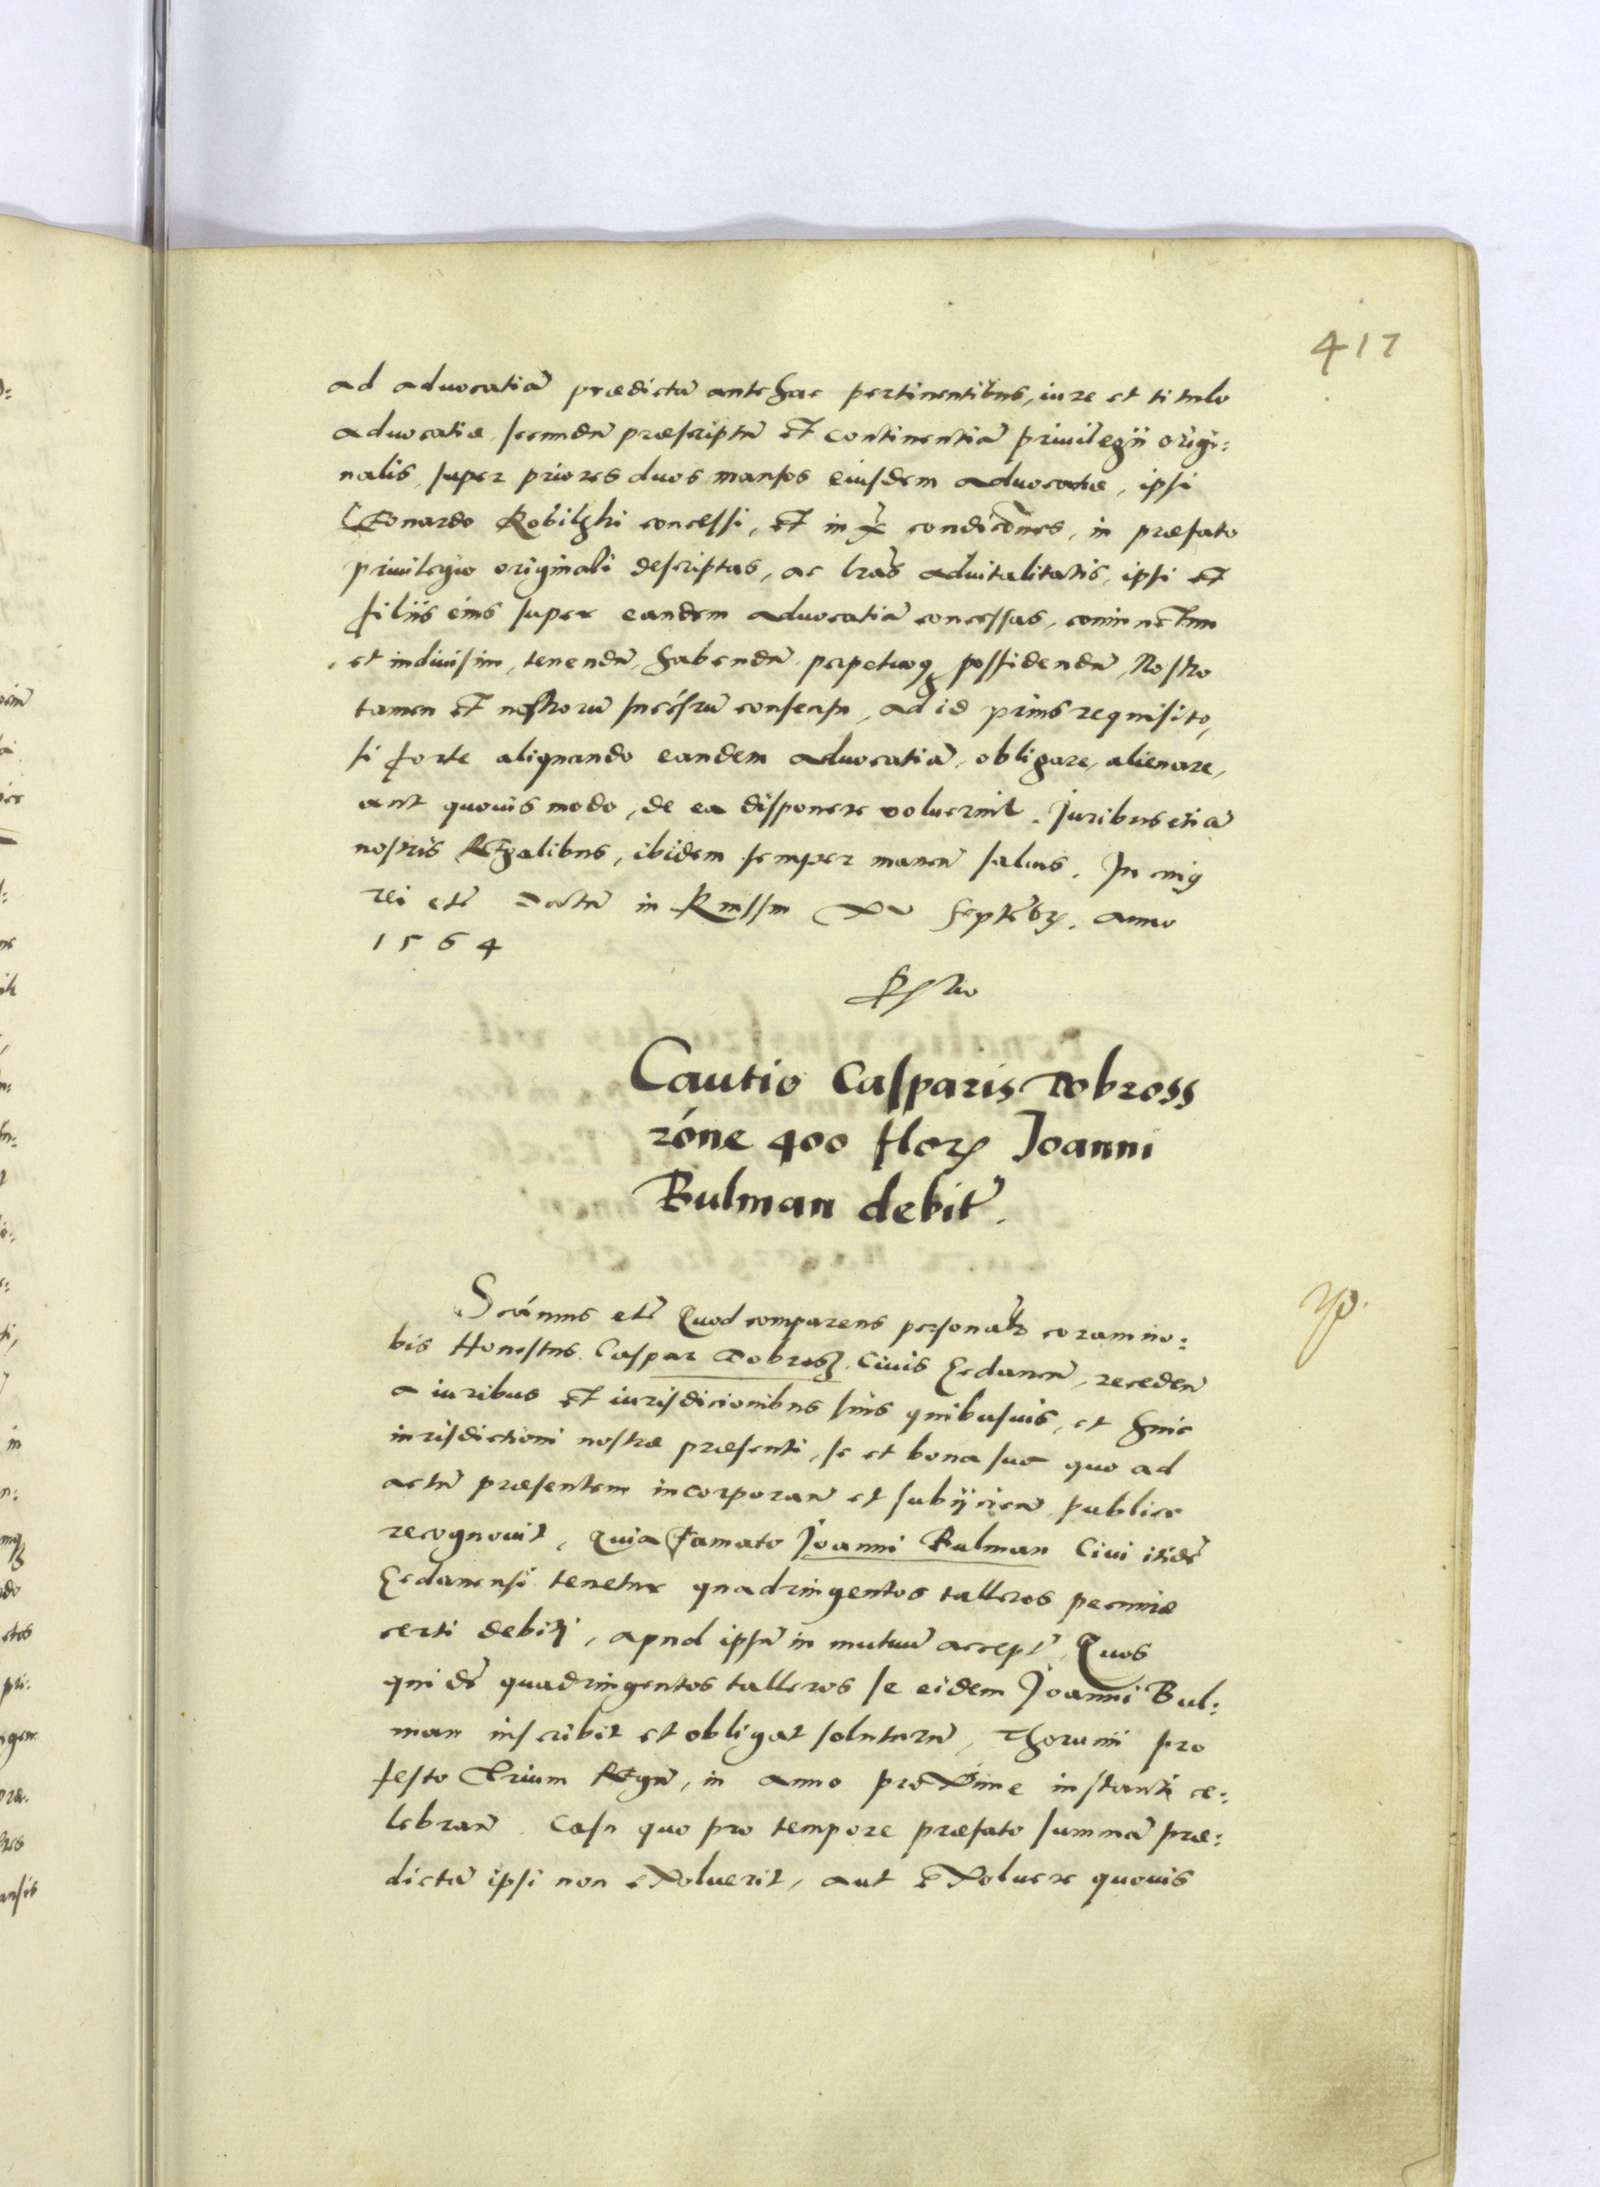 417
ad aduocatiā prædictā antehac pertinentibus, iure et titulo
aduocatiæ, secundū præscriptū et continentiā priuilegii origi:
nalis, super priores duos mansos eiusdem aduocatiæ, ipsi
Leonardo Robilzki concessi, et in condicōnes, in præfato
priuilegio originali descriptas, ac lrās aduitalitatis, ipsi et
filiis eius super eandem aduocatiā concessas, coniunctim
et indiuisim, tenendū, habendū perpetuoqꝫ possidendū, Nostro
tamen et nostrorū succesrū consensu, ad id prius requisito,
si forte aliquando eandem aduocatiā, obligare, alienare,
aut quouis modo, de ea disponere voluerint. Juribus etiā
nostris Regalibus, ibidem semper manen̄ saluis. In cuiꝰ
rei etc̄ Datū in xv Septēbꝝ. anno
1564
Cautio Casparis Dobross
rōne 400 floꝝ Joanni
Bulman debit̄.
etc̄ Quod comparens personalr̄ coram no:
bis Honestus Caspar Dobrosz Ciuis Gedanen̄, receden̄
a iuribus et iurisdicionibus suis quibusuis, et huic
iurisdictioni nostræ præsenti, se et bona sua quo ad
actū præsentem incorporan̄ et subijcien̄ publice
recognouit, Quia famato Joanni Bulman Ciui itidē
Gedanensi tenetur quadringentos talleros pecuniæ
certi debiti, apud ipsū in mutuū accept̄, Quos
quidē quadringentos talleros se eidem Joanni Bul:
man inscribit et obligat soluturū, Thorunii pro
festo Trium Regū, in anno proxime instanti ce:
lebran̄. Casu quo pro tempore præfato summā præ:
dictā ipsi non exoluerit, aut exoluere quouis